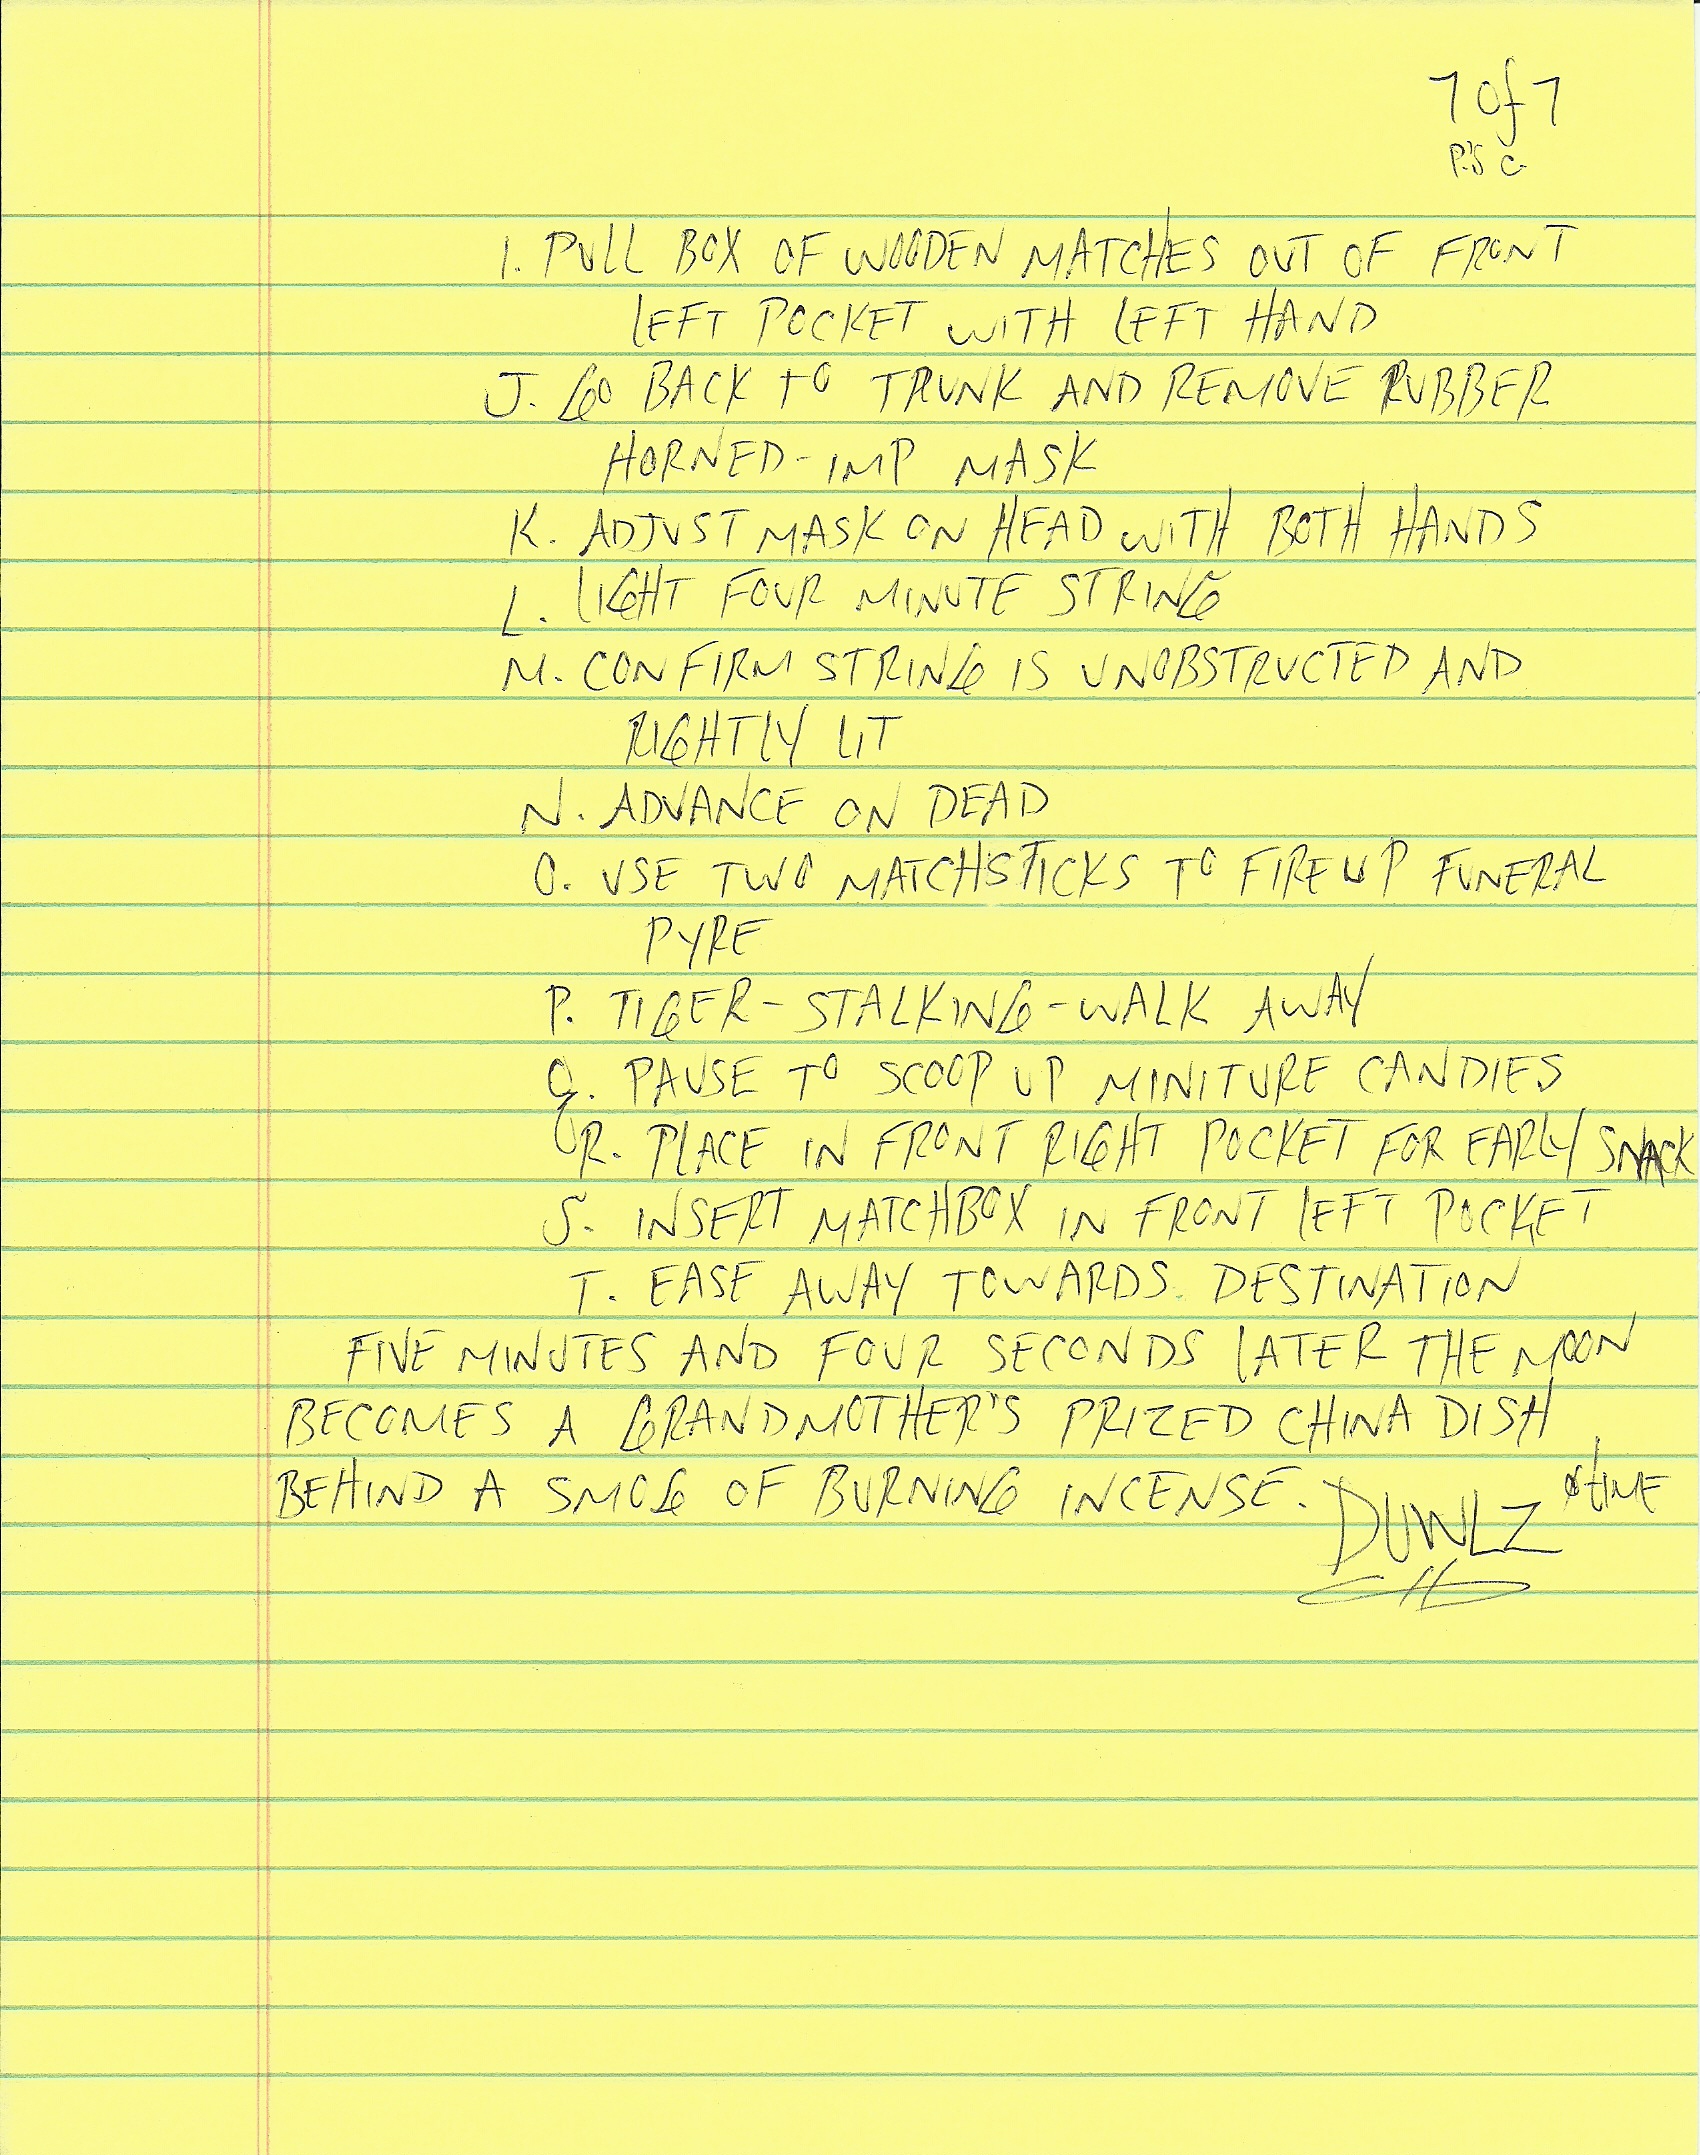 7 of 7
P.S C.
I. PULL BOX OF WOODEN MATCHES OUT OF FRONT
LEFT POCKET WITH LEFT HAND
J. GO BACK TO TRUNK AND REMOVE RUBBER
HORNED-IMP MASK
K. ADJUST MASK ON HEAD WITH BOTH HANDS
L. LIGHT FOUR MINUTE STRING
M. CONFIRM STRING IS UNOBSTRUCTED AND
RIGHTLY LIT
N. ADVANCE ON DEAD
O. USE TWO MATCHSTICKS TO FIRE UP FUNERAL
PYRE
P. TIGER-STALKING-WALK AWAY
Q. PAUSE TO SCOOP UP MINITURE CANDIES
R. PLACE IN FRONT RIGHT POCKET FOR EARLY SNACK
S. INSERT MATCHBOX IN FRONT LEFT POCKET
T. EASE AWAY TOWARDS DESTINATION
FIVE MINUTES AND FOUR SECONDS LATER THE MOON
BECOMES A GRANDMOTHER'S PRIZED CHINA DISH
BEHIND A SMOG OF BURNING INCENSE.
DUWLZ